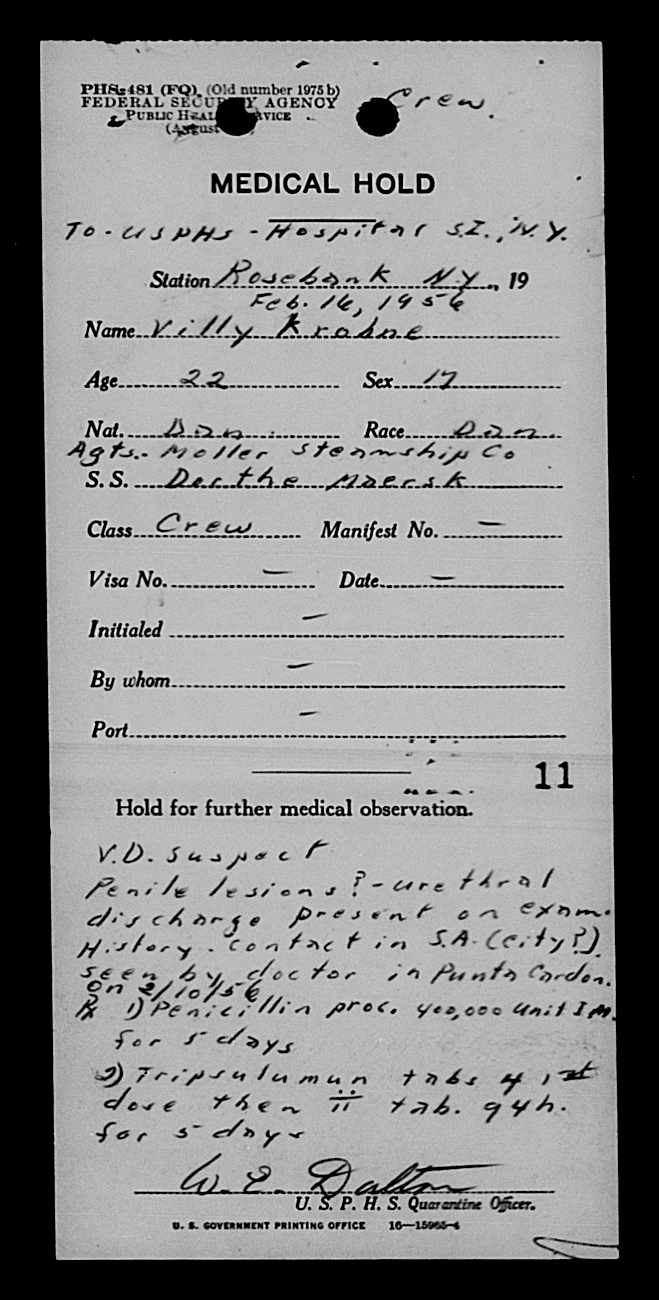 PHS-481 (FQ) (Old number 1975 b)
Crew.
FEDERAL SECURITY AGENCY
PUBLIC HEALTH SERVICE
(August
MEDICAL HOLD
To - USPHS - Hospital S.I., N.Y.
Station Rosebank N.Y., 19
Feb. 16, 1956
Name Villy Krohne
Age 22 Sex 17
Nat. Dan. Race Dan.
Agts. - Moller Steamship Co
S. S. Dorthe Maersk
Class Crew Manifest No. —
Visa No. — Date —
Initialed —
By whom —
Port —
11
Hold for further medical observation.
V.D. suspect
Penile lesions? - urethral
discharge present on exam.
History. contact in S.A. (city?).
seen by doctor in Punta Cardon.
on 2/10/56
Rx 1) Penicillin proc. 400,000 unit I.M.
for 5 days
2) Tripsulumun tabs 4 1st
dose then ii tab. q4h.
for 5 days
W. E. Dalton
U. S. P. H. S. Quarantine Officer.
U. S. GOVERNMENT PRINTING OFFICE 16—15965-4